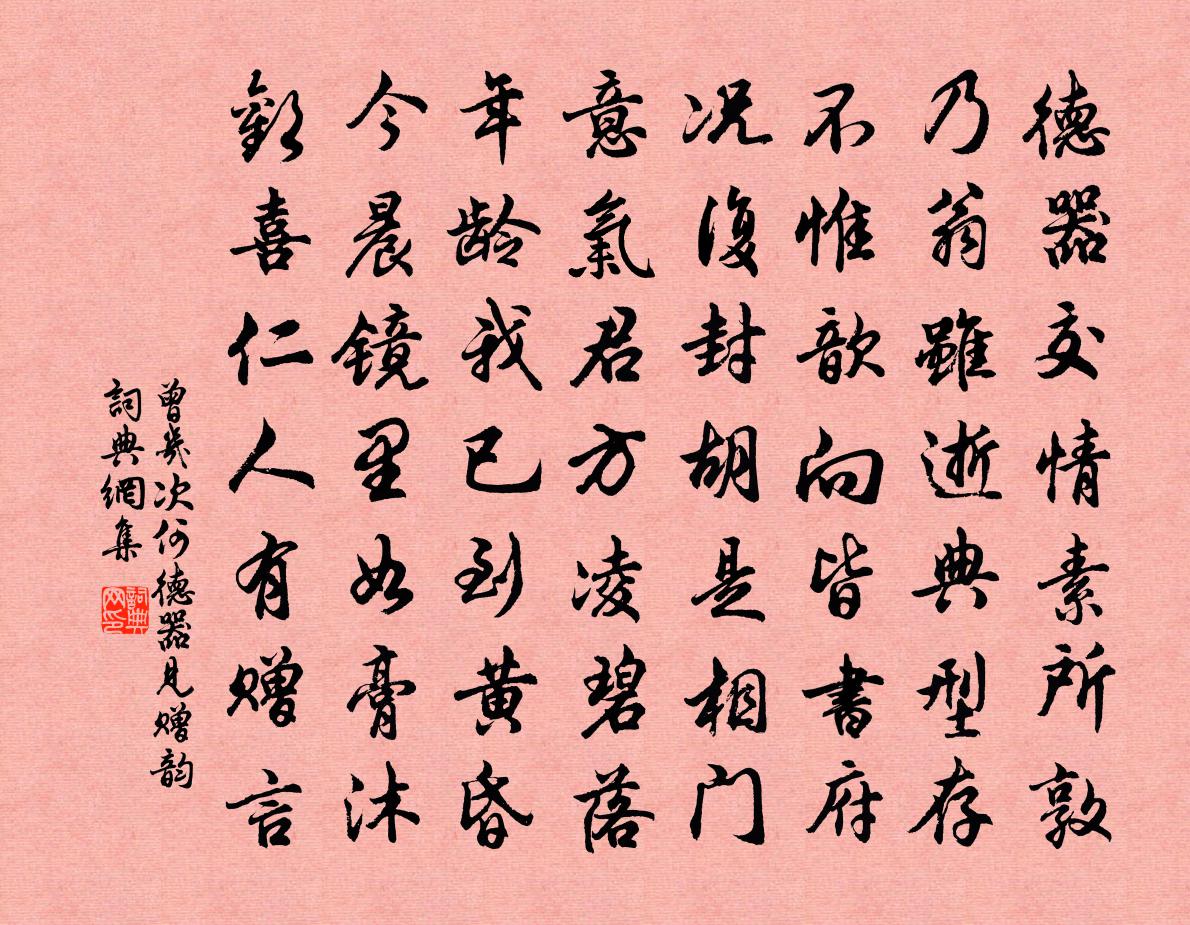 德器交情素所敦
乃翁雖逝典型存
不惟歆向皆書府
况復封胡是相门
意氣君方凌碧落
年龄我已到黄昏
今晨镜里如膏沐
歡喜仁人有赠言
曾幾次何德器見赠韵
詞典網集
詞典网印